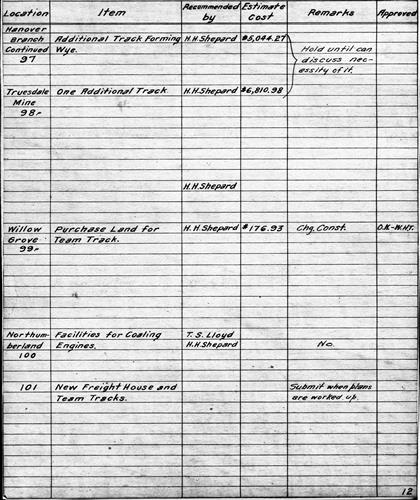 Location Item Recommended by Estimate Cost Remarks Approved
Hanover
Branch Additional Track Forming H.H.Shepard $5,044.27
Continued Wye. Hold until can
97 discuss nec-
essity of it.
Truesdale One Additional Track H.H.Shepard $6,810.98
Mine
98-
H.H.Shepard
Willow Purchase Land for H.H.Shepard $176.93 Chg. Const. O.K.-W.H.T.
Grove Team Track.
99-
Northum- Facilities for Coaling T. S. Lloyd
berland Engines. H.H.Shepard No.
100
101 New Freight House and Submit when plans
Team Tracks. are worked up.
12